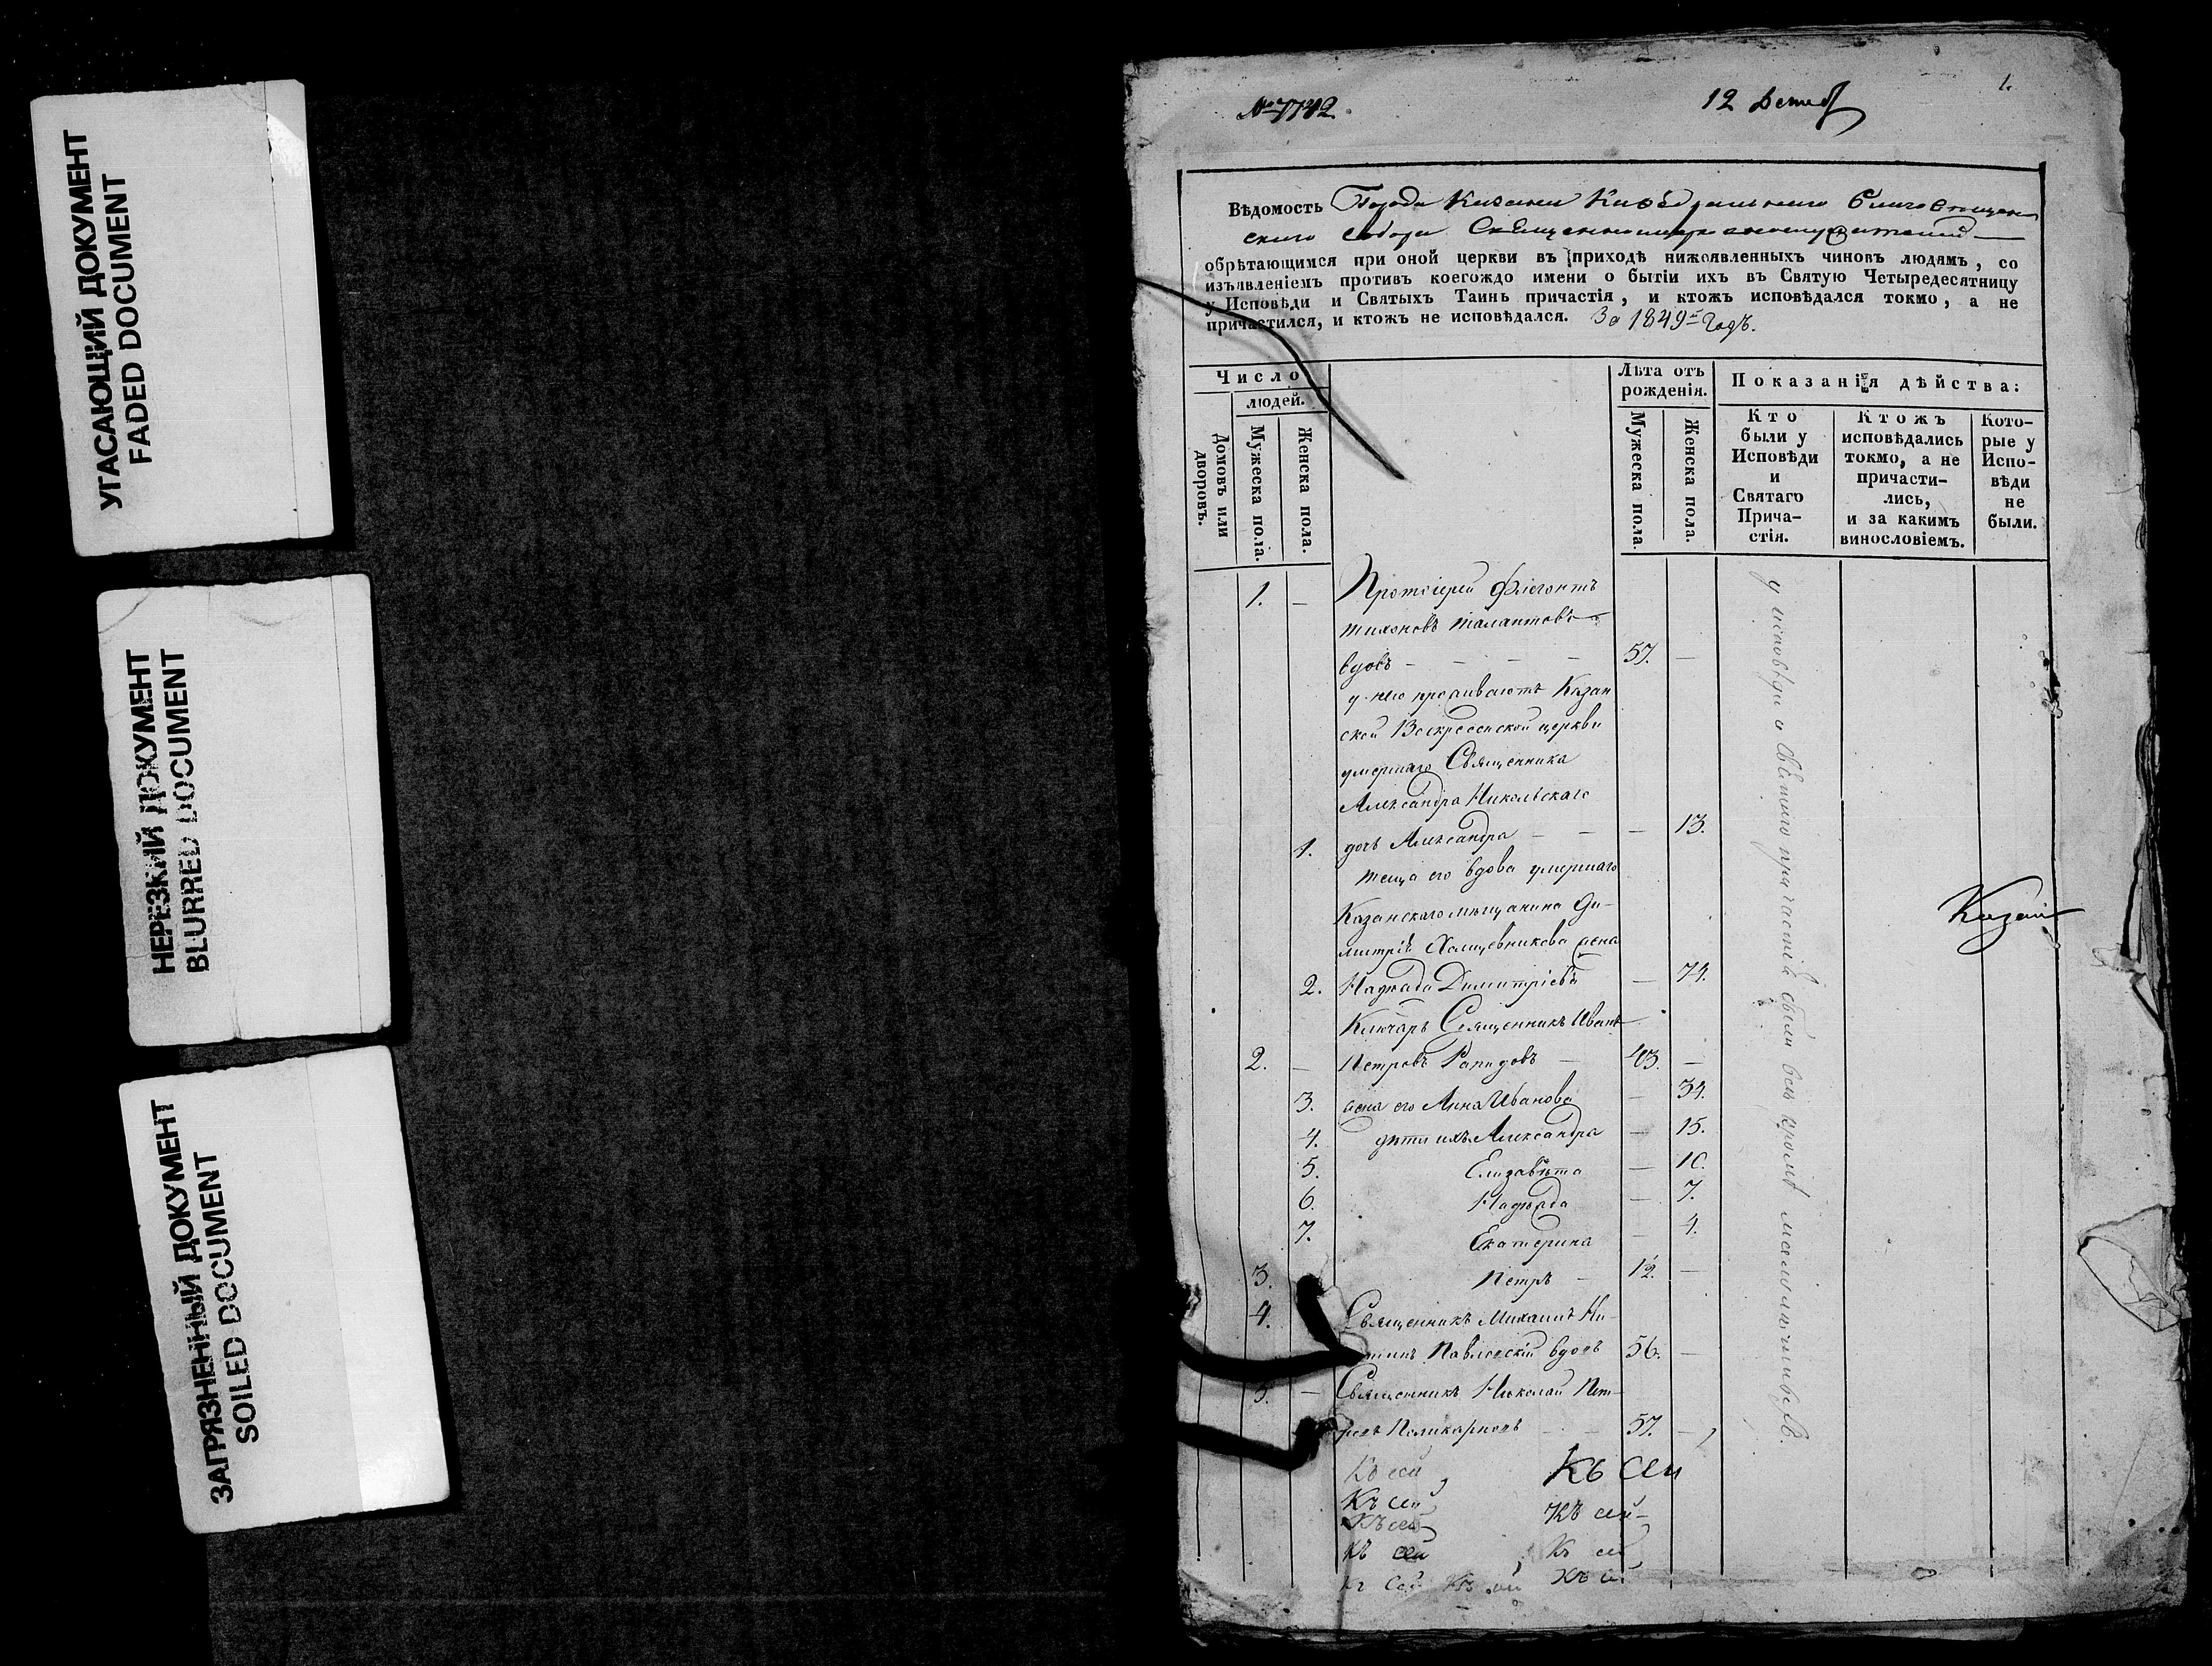 УГАСАЮЩИЙ ДОКУМЕНТ
FADED DOCUMENT
НЕРЕЗКИЙ ДОКУМЕНТ
BLURRED DOCUMENT
ЗАГРЯЗНЕННЫЙ ДОКУМЕНТ
SOILED DOCUMENT
№ 7742.
12
1.
Вѣдомость Города Казани Каѳедральнаго Благовѣщен
скаго Собора
обрѣтающимся при оной церкви въ приходѣ нижеявленныхъ чиновъ людямъ, со
изъявленіемъ противъ коегождо имени о бытіи ихъ въ Святую Четыредесятницу
у Исповѣди и Святыхъ Таинъ причастія, и ктожъ исповѣдался токмо, а не
причастился, и ктожъ не исповѣдался. За 1849й Годъ.
Число
людей.
Домовъ или дворовъ.
Мужеска пола.
Женска пола.
Лѣта отъ рожденія.
Мужеска пола.
Женска пола.
Показанія дѣйства:
Кто
были у
Исповѣди
и
Святаго
Прича-
стія.
Ктожъ
исповѣдались
токмо, а не
причасти-
лись,
и за какимъ
винословіемъ.
Кото-
рые у
Испо-
вѣди
не
были.
1. – Протоіерей Флегонтъ
Тихоновъ Талантовъ
вдовъ – – – – 57. –
у него проживаютъ Казан
ской Воскресенской церкви
умершаго Священника
Александра Никольскаго
1. дочь Александра – – – 13.
теща его вдова умершаго
Казанскаго мѣщанина Ди-
митрія Холщевникова жена
2. Надежда Димитріева – 74.
Ключарь Священникъ Иванъ
2. – Петровъ Рапидовъ – 43. –
3. жена его Анна Иванова – 34.
4. дѣти ихъ Александра – 15.
5. Елизавѣта – 10.
6. Надежда – 7.
7. Екатерина – 4.
3. Петръ – 12. –
4. Священникъ Михаилъ Ни-
Павловскій вдовъ 56. –
5. – Священникъ Николай Пет-
ровъ Поликарповъ – – 57. –
у исповѣди и святаго причастія были всѣ кромѣ
Казан
Къ сей Къ сей
Къ сей
Къ сей Къ сей
Къ сей Къ сей
Къ сей Къ сей